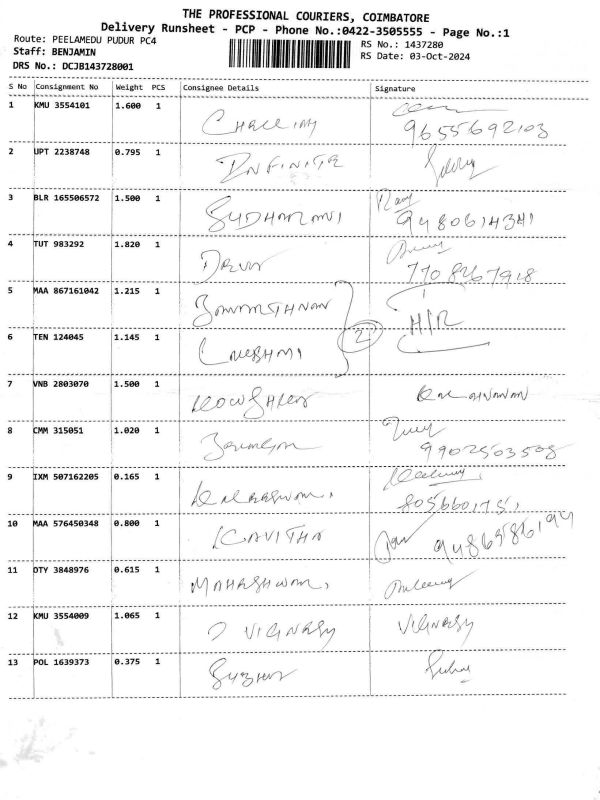 THE PROFESSIONAL COURIERS, COIMBATORE
Delivery Runsheet - PCP - Phone No.:0422-3505555 - Page No.:1
Route: PEELAMEDU PUDUR PC4
RS No.: 1437280
Staff: BENJAMIN
RS Date: 03-Oct-2024
DRS No.: DCJB143728001
S No Consignment No Weight PCS Consignee Details Signature
1 KMU 3554101 1.600 1
9655692103
2 UPT 2238748 0.795 1 INFINITE
3 BLR 165506572 1.500 1 SUDHARANI
9480614341
4 TUT 983292 1.820 1
7708267918
5 MAA 867161042 1.215 1
2 H/R
6 TEN 124045 1.145 1
7 VNB 2803070 1.500 1
8 CMM 315051 1.020 1
9902503508
9 IXM 507162205 0.165 1
8056601751
10 MAA 576450348 0.800 1 KAVITHA
9486586194
11 OTY 3848976 0.615 1
12 KMU 3554009 1.065 1 VIGNESH VIGNESH
13 POL 1639373 0.375 1